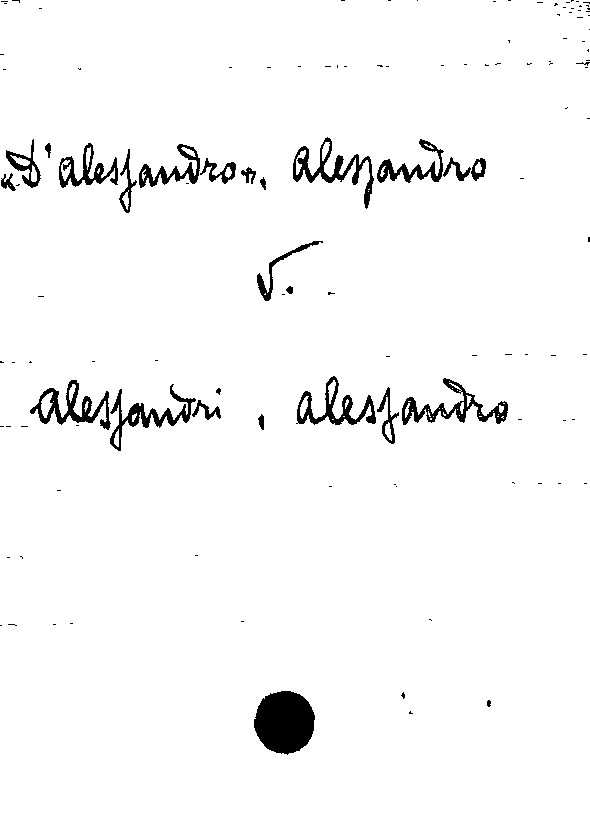 «D'Alessandro», Alessandro
V.
Alessandri, Alessandro